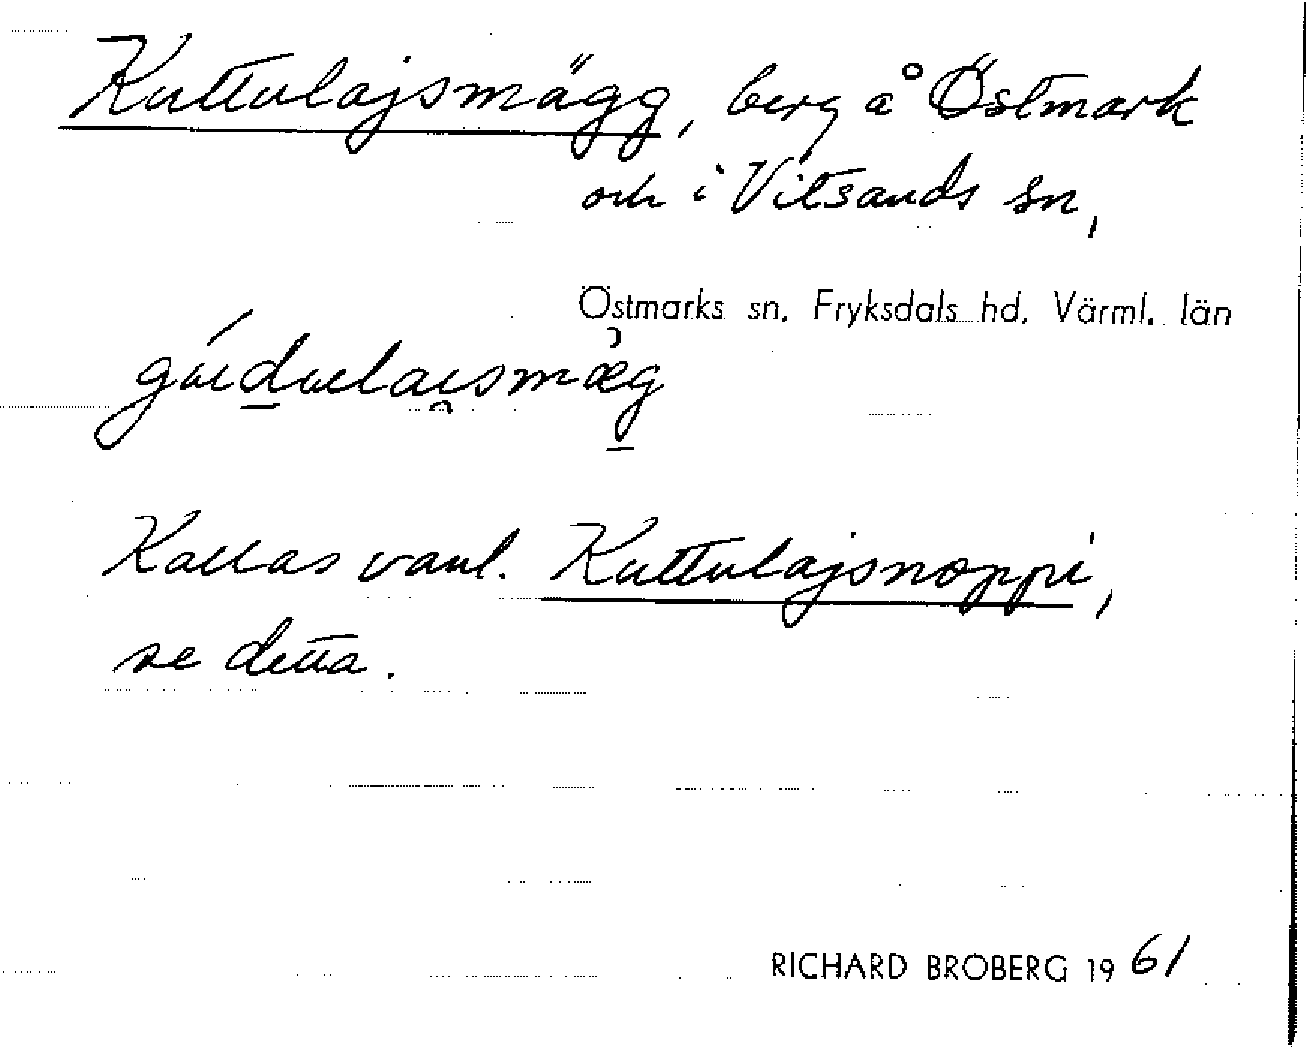 Kuttulajsmägg, berg å Östmark
och i Vitsands sn,
Östmarks sn. Fryksdals hd. Värml. län
gúdulaismæg
Kallas vanl. Kuttulajsnoppi,
se detta.
RICHARD BROBERG 1961